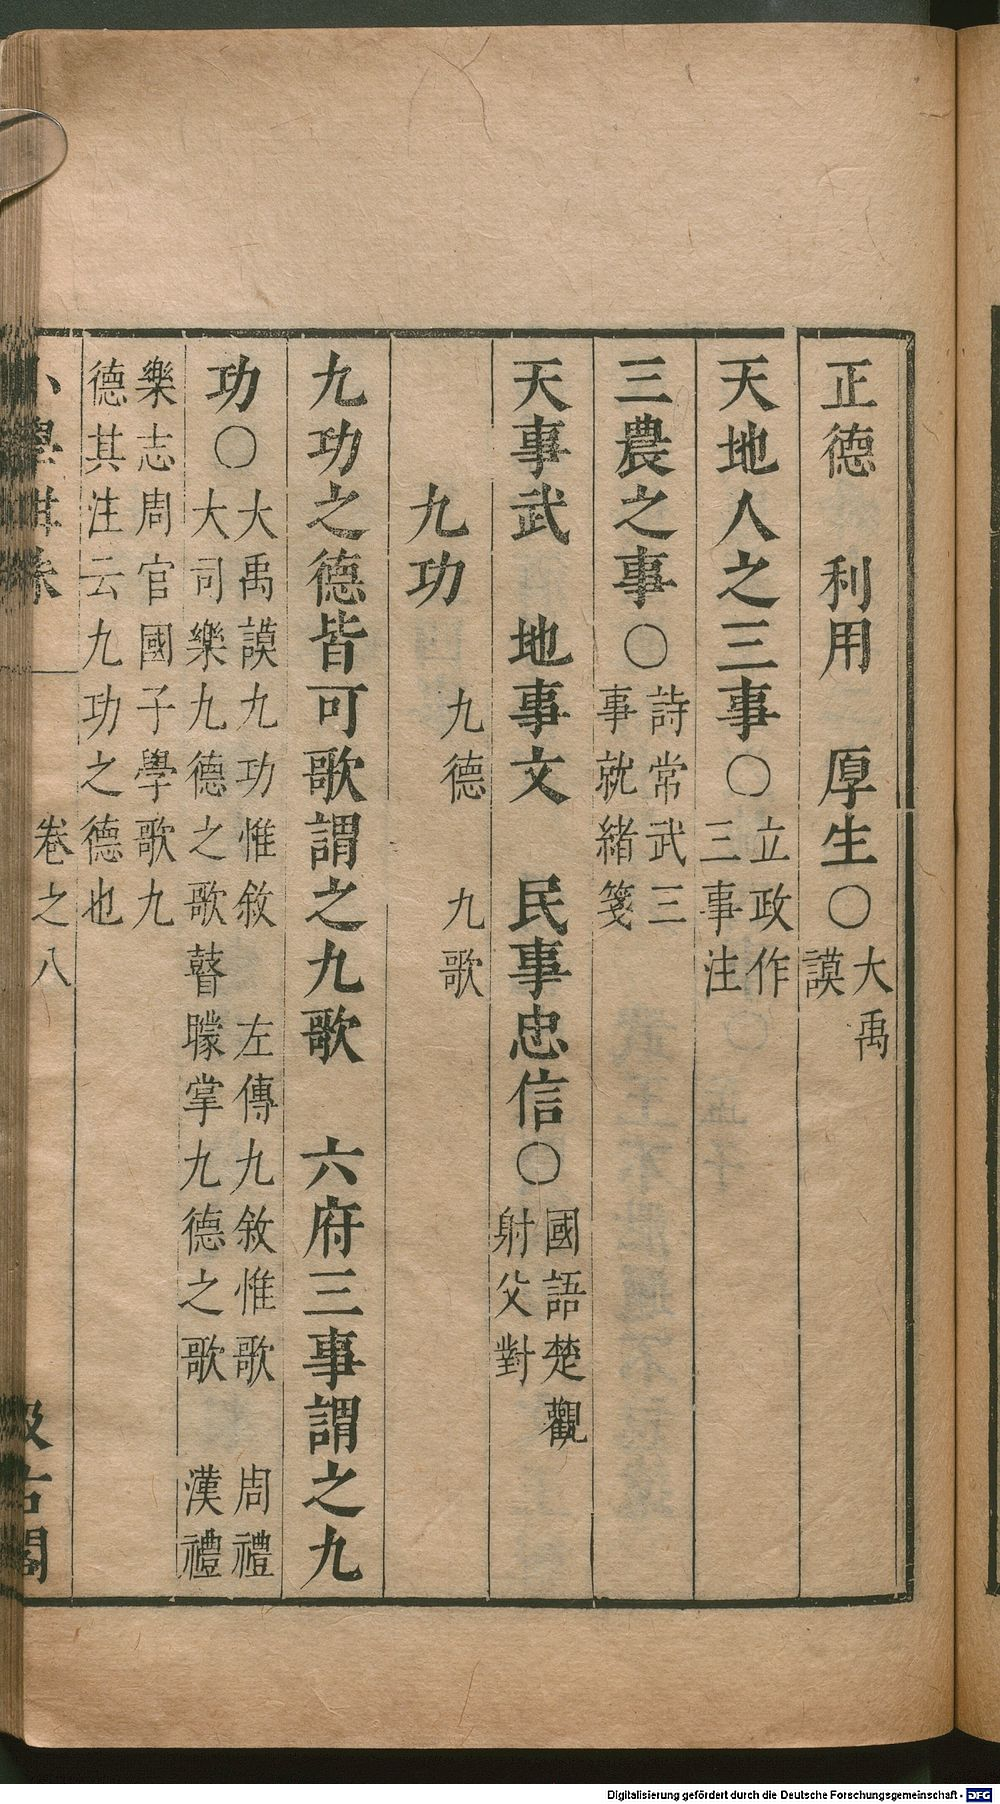 正德　利用　厚生○大禹謨
天地人之三事○立政作三事注
三農之事○詩常武三事就緒箋
天事武　地事文　民事忠信○國語楚觀射父對
九功　九德　九歌
九功之德皆可歌謂之九歌　六府三事謂之九
功○大禹謨九功惟敘　左傳九敘惟歌　周禮大司樂九德之歌瞽矇掌九德之歌　漢禮
樂志周官國子學歌九德其注云九功之德也
卷之八
Digitalisierung gefördert durch die Deutsche Forschungsgemeinschaft - DFG